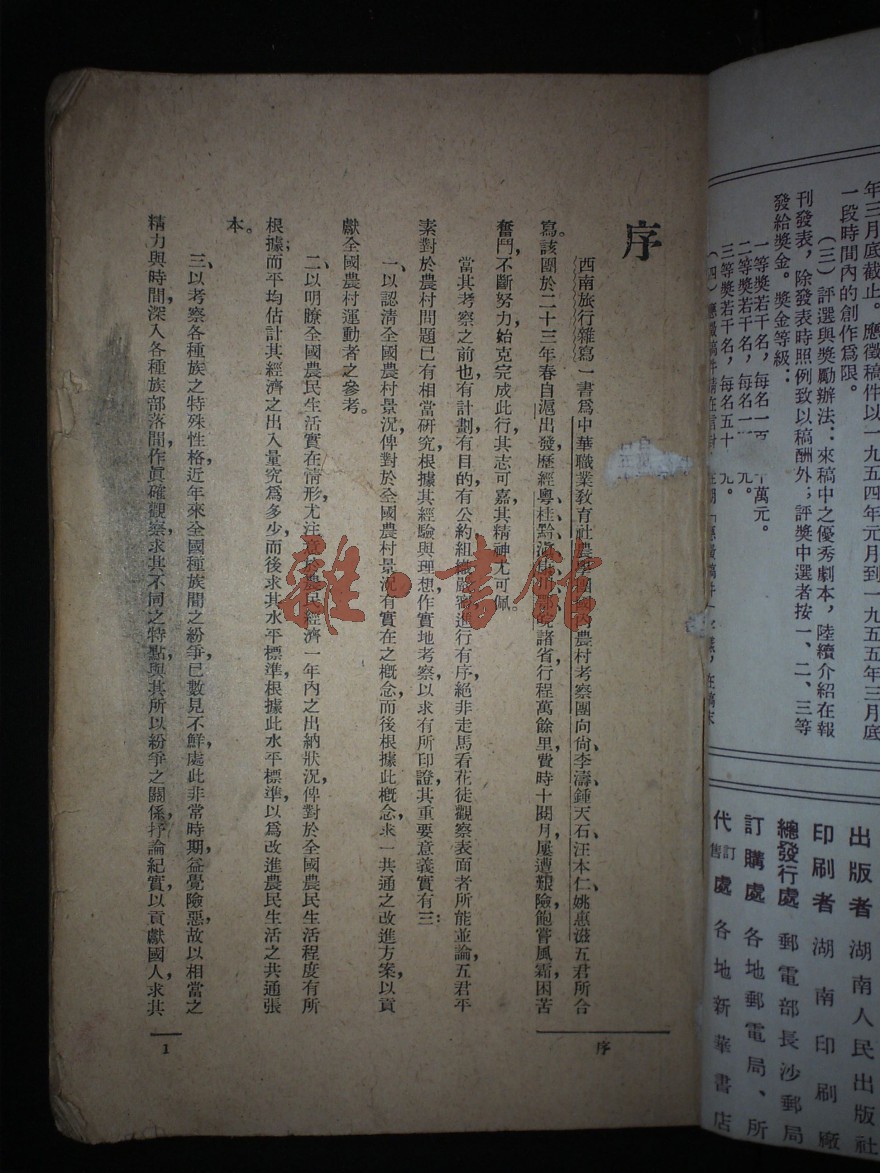 年三月底截止。應徵稿件以一九五四年元月到一九五五年三月底
一段時間內的創作爲限。
（三）評選與獎勵辦法：來稿中之優秀劇本，陸續介紹在報
刊發表，除發表時照例致以稿酬外；評獎中選者按一、二、三等
發給獎金。獎金等級：
一等獎若干名，每名一 萬元。
二等獎若干名，每名一 元。
三等獎若干名，每名五十 元。
（四）應徵稿件請在信封
出版者 湖南人民出版社
印刷者 湖南印刷廠
總發行處 郵電部長沙郵局
訂購處 各地郵電局、所
代訂售處 各地新華書店
序
西南旅行雜寫一書爲中華職業教育社農學團國內農村考察團向尙、李濤、鍾天石、汪本仁、姚惠滋五君所合
寫。該團於二十三年春自滬出發歷經粵桂黔滇 諸省行程萬餘里，費時十閱月，屢遭艱險，飽嘗風霜，困苦
奮鬥，不斷努力，始克完成此行，其志可嘉，其精神尤可佩。
當其考察之前也，有計劃，有目的，有公約，組織嚴密，進行有序，絕非走馬看花，徒觀察表面者所能並論，五君平
素對於農村問題已有相當研究，根據其經驗與理想，作實地考察，以求有所印證，其重要意義，實有三：
一、以認清全國農村景況，俾對於全國農村景況有實在之概念，而後根據此概念，求一共通之改進方案，以貢
獻全國農村運動者之參考。
二、以明瞭全國農民生活實在情形，尤注意於農民經濟一年內之出納狀況，俾對於全國農民生活程度有所
根據；而平均估計其經濟之出入量究爲多少，而後求其水平標準，根據此水平標準，以爲改進農民生活之共通張
本。
三、以考察各種族之特殊性格，近年來全國種族間之紛爭，已數見不鮮，處此非常時期，益覺險惡，故以相當之
精力與時間，深入各種族部落間，作眞確觀察，求其不同之特點，與其所以紛爭之關係，抒論紀實，以貢獻國人，求其
序
1
雜·書館